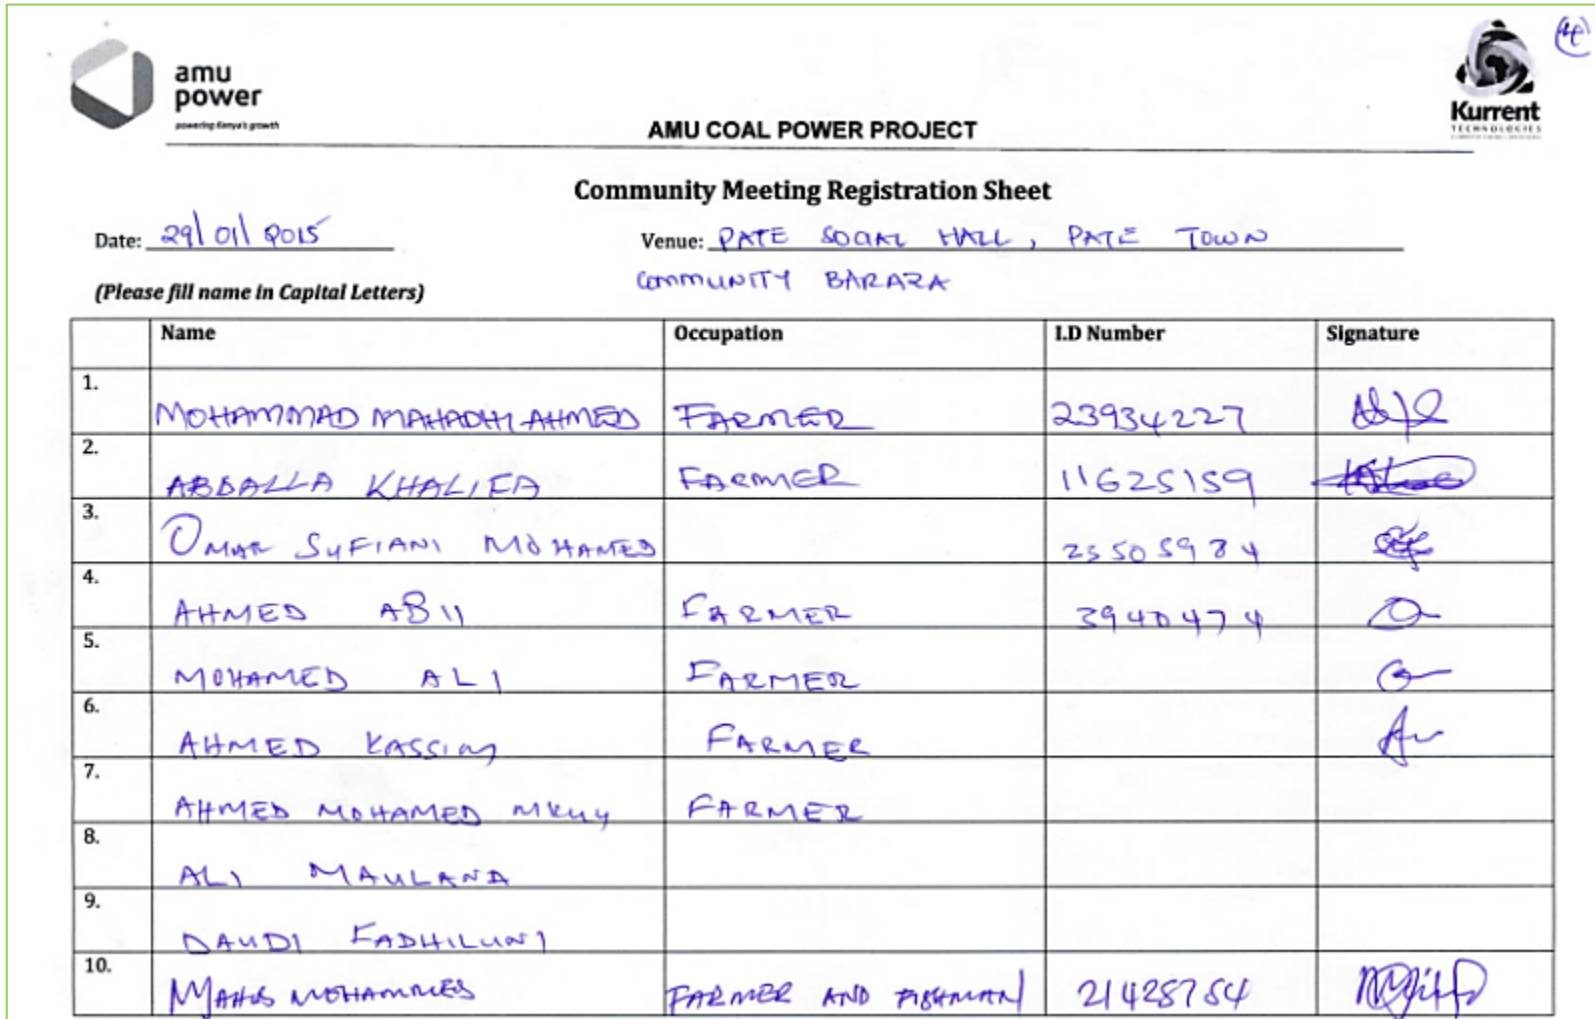 amu
power
powering Kenya's growth
Kurrent
TECHNOLOGIES
AMU COAL POWER PROJECT
Community Meeting Registration Sheet
Date: 29/01/2015 Venue: PATE SOCIAL HALL, PATE TOWN
(Please fill name in Capital Letters) COMMUNITY BARAZA
Name Occupation I.D Number Signature
1. MOHAMMAD MAHADHI AHMED FARMER 23934227
2. ABDALLA KHALIFA FARMER 11625159
3. OMAR SUFIANI MOHAMED 23505984
4. AHMED ABU FARMER 3940474
5. MOHAMED ALI FARMER
6. AHMED KASSIM FARMER
7. AHMED MOHAMED MKUY FARMER
8. ALI MAULANA
9. DAUDI FADHILUNI
10. MOHAMMED FARMER AND FISHMAN 21428754